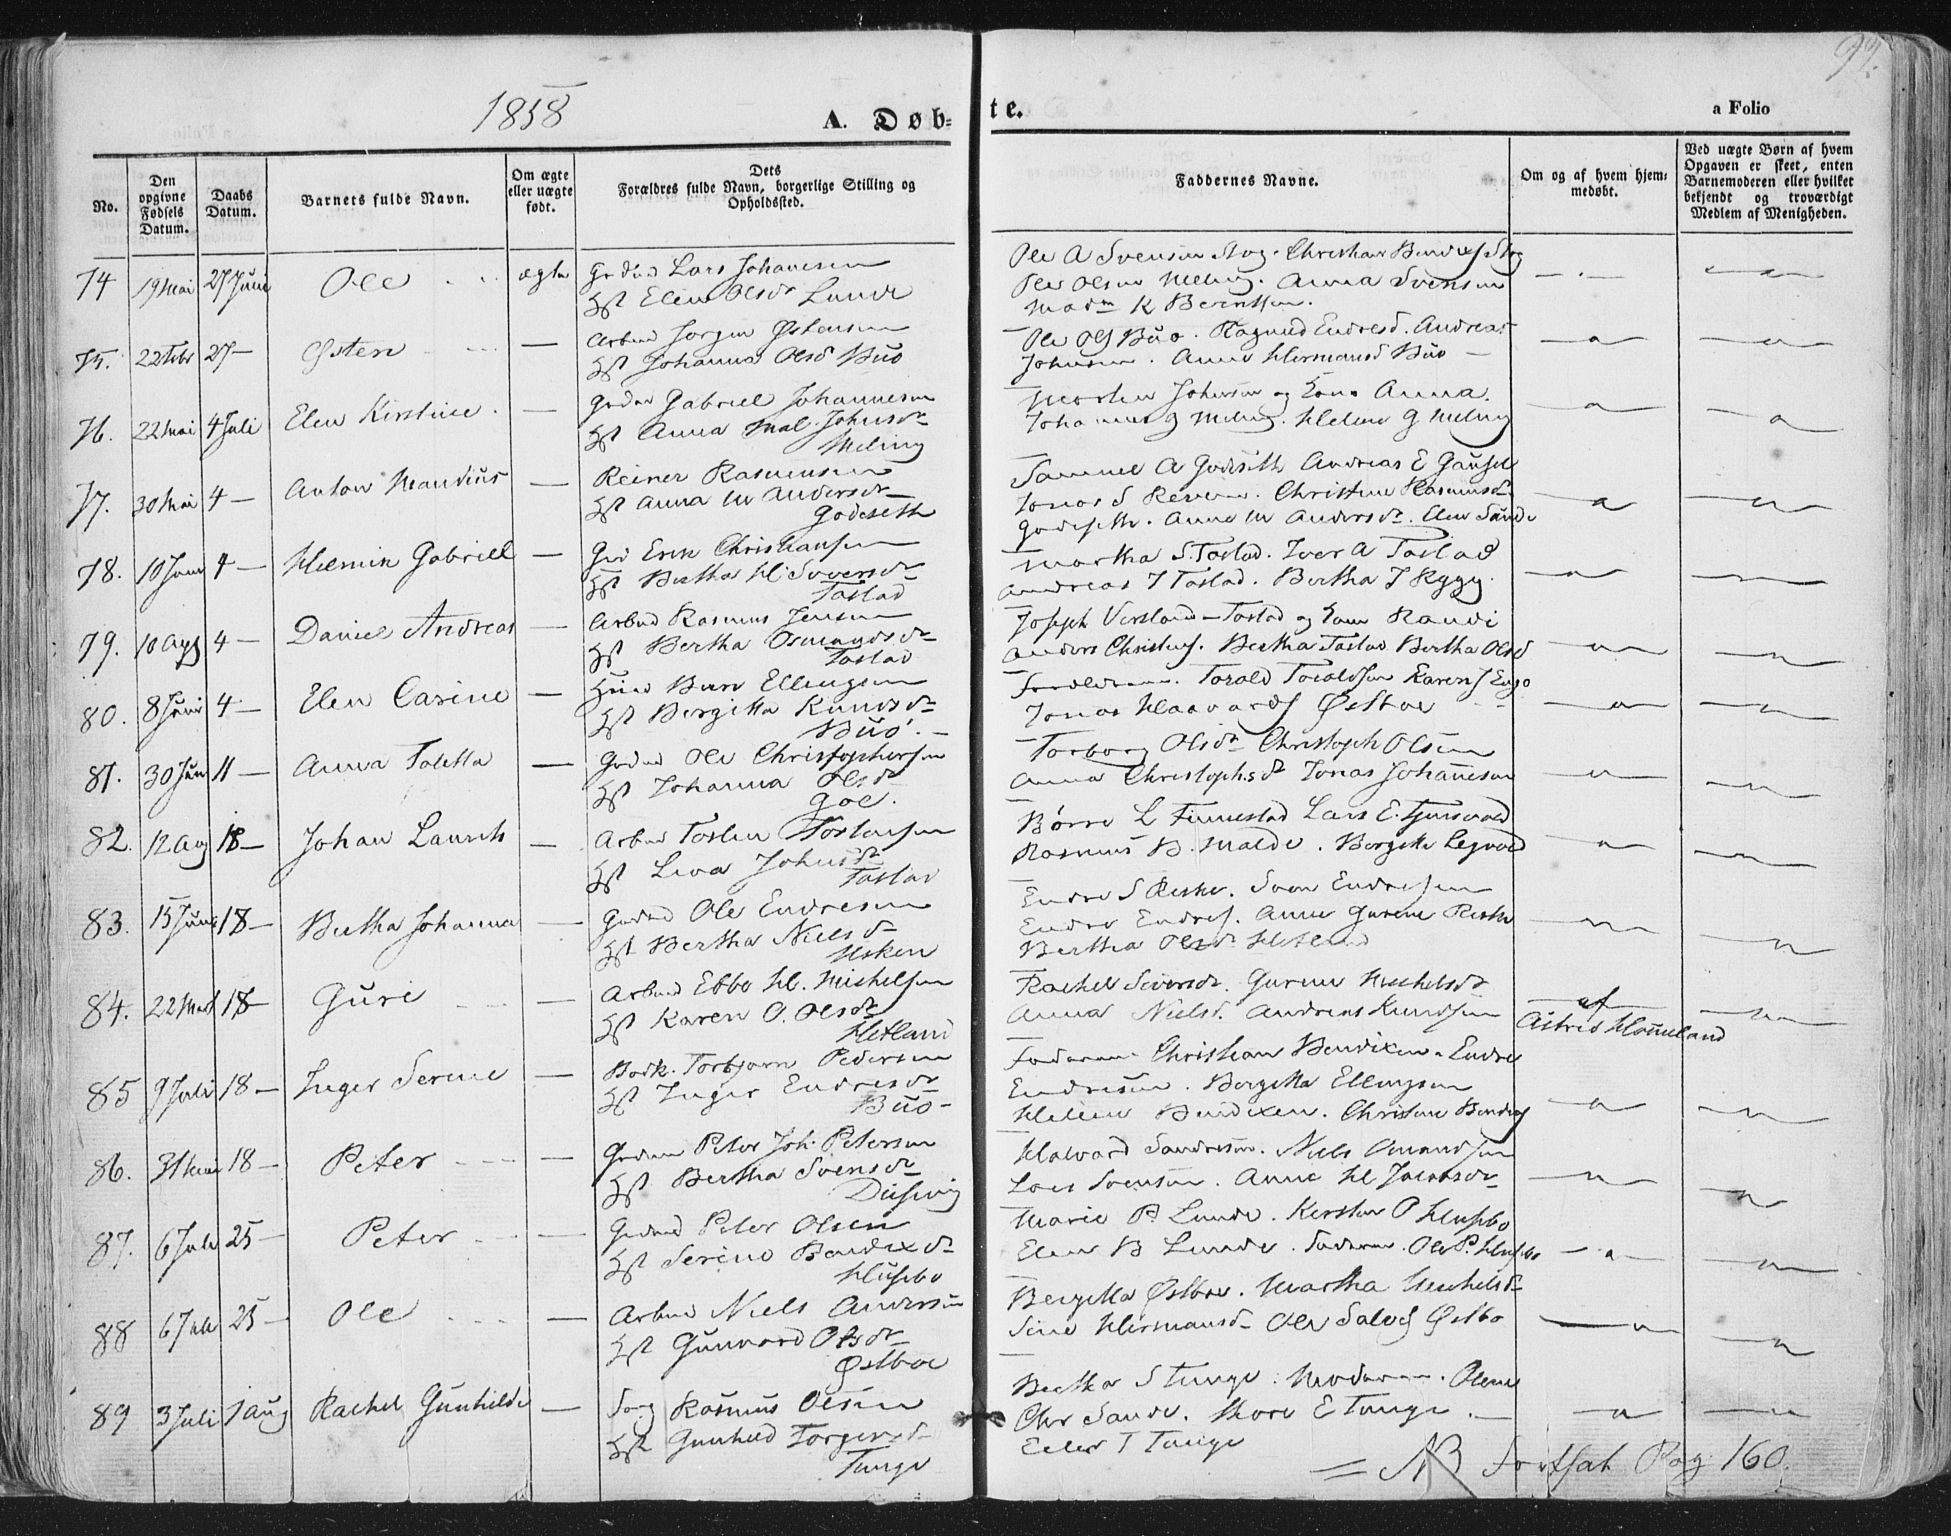 1858
A. Døb=
te.
a Folio
No.
Den opgivne Fødsels Datum.
Daabs Datum.
Barnets fulde Navn.
Om ægte eller uægte født.
Dets Forældres fulde Navn, borgerlige Stilling og Opholdssted.
Faddernes Navne.
Om og af hvem hjemmedøbt.
Ved uægte Børn af hvem Opgaven er skeet, enten Barnemoderen eller hvilket bekjendt og troværdigt Medlem af Menigheden.
74 19 Mai 27 Juni Ole ægte Lars Johanesen
Elen Olsdr Lunde
Ole A Svensen
Ole Olsen Meling. Anna Svensen
Madm K Berentsen.
75. 22 Febr 27 — Østen — Arbmd Jørgen Østensen
Johanna Olsd Buø
Ole Ols Buø. Ragnild Endresd. Andreas
Johnsen. Anne Hermansd Buø
76. 22 Mai 4 Juli Elen Kirstine. — Gabriel Johannesen
Anna Mal. Johnsdr
Meling
Morten Johnsen og Kone Anna.
Johannes G Meling. Helene G Meling
77. 30 Mai 4 — Anton Maudius — Reiner Rasmussen
Anna M Andersdr
Godeseth
Samuel A Godeseth Andreas E Gausel
Jonas S Christine Rasmusd
Godeseth. Anne M Andersdr. Elen Sande
78. 10 Juni 4 — Helmik Gabriel — Erik Christiansen
Bertha H. Siversdr
Tastad
Martha S. Tastad. Iver A Tastad
Andreas T Tastad. Bertha T Rygg.
79. 10 4 — Daniel Andreas — Arbmd Rasmus Jensen
Bertha Osmundsdr
Tastad
Joseph Versland — Tastad og Kone Randi
Anders Christens. Bertha Tastad Bertha Olsd
80. 8 Juni 4 — Elen Carine — Bern Ellingsen
Bergitta Knudsdr
Buø. —
Torald Toraldsen Karen J Engø
Jonas Haavards Østboe
81. 30 Juni 11 — Anna Taletta — Ole Christophersen
Johanna Olsdr
Goe.
Torborg Olsdr Christoph Olsen
Anna Christophsdr Jonas Johannesen
82. 12 Aug 18 — Johan Laurits — Arbmd Tosten Tostensen
Lisa Johnsdr
Tastad
Børre L Finnestad Lars E.
Rasmus B. Malde. Bergitte
83. 15 Juni 18 — Bertha Johanna — Ole Endresen
Bertha Nielsdr
Usken
Endre S Reske. Sven Endresen
Endre Endres. Anne Gurine Reske
Bertha Olsdr Hetland
84. 22 18 — Guri — Arbmd Ebbe H. Mishelsen
Karen O. Olsdr
Hetland
Rachel Siversdr. Gurine Mechelsdr
Anna Nielsd. Andreas Knudsen
af
Astrid Hommeland
85 9 Juli 18 — Inger Serine — Torbjørn Pedersen
Inger Endresdr
Buø —
Faderen. Christian Bendixen. Endre
Endresen. Bergitta Ellingsen
Helene Bendixen. Christine Bendix
86. 31 Mai 18 — Peter — Peter Joh. Petersen
Bertha Svensdr
Dusevig
Halvard Sandresen. Niels Omundsen
Lars Svensen. Anne H Jacobsdr
87. 6 Juli 25 — Peter — Peter Olsen
Serine Bendixdr
Husebø
Marie P. Lunde. Kersten P Husebø
Elen B Lunde. Faderen. Ole P. Husebø
88 6 Juli 25 — Ole — Arbmd Niels Andersen
Gunvord Olsdr
Østboe
Bergitta Østboe. Martha Mechelsdr
Sine Hermansdr Ole Salvs Østbo
89 3 Juli 1 Aug Rachel Gunhilde — Rasmus Olsen
Gunhild Torgersdr
Tunge
Bertha S Tunge. Moderen. Olene
Sande. Thore E Tunge
T Tunge
= NB Fortsat Pag: 160.